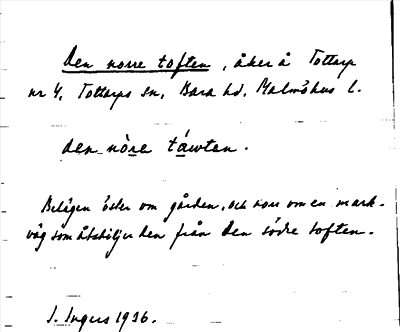 Den norre toften, åker å Tottarp
nr 4, Tottarps sn, Bara hd, Malmöhus l.
den nòre táwten.
Belägen öster om gården, och norr om en mark-
väg som åtskiljer den från Den södre toften.
I. Ingers 1936.